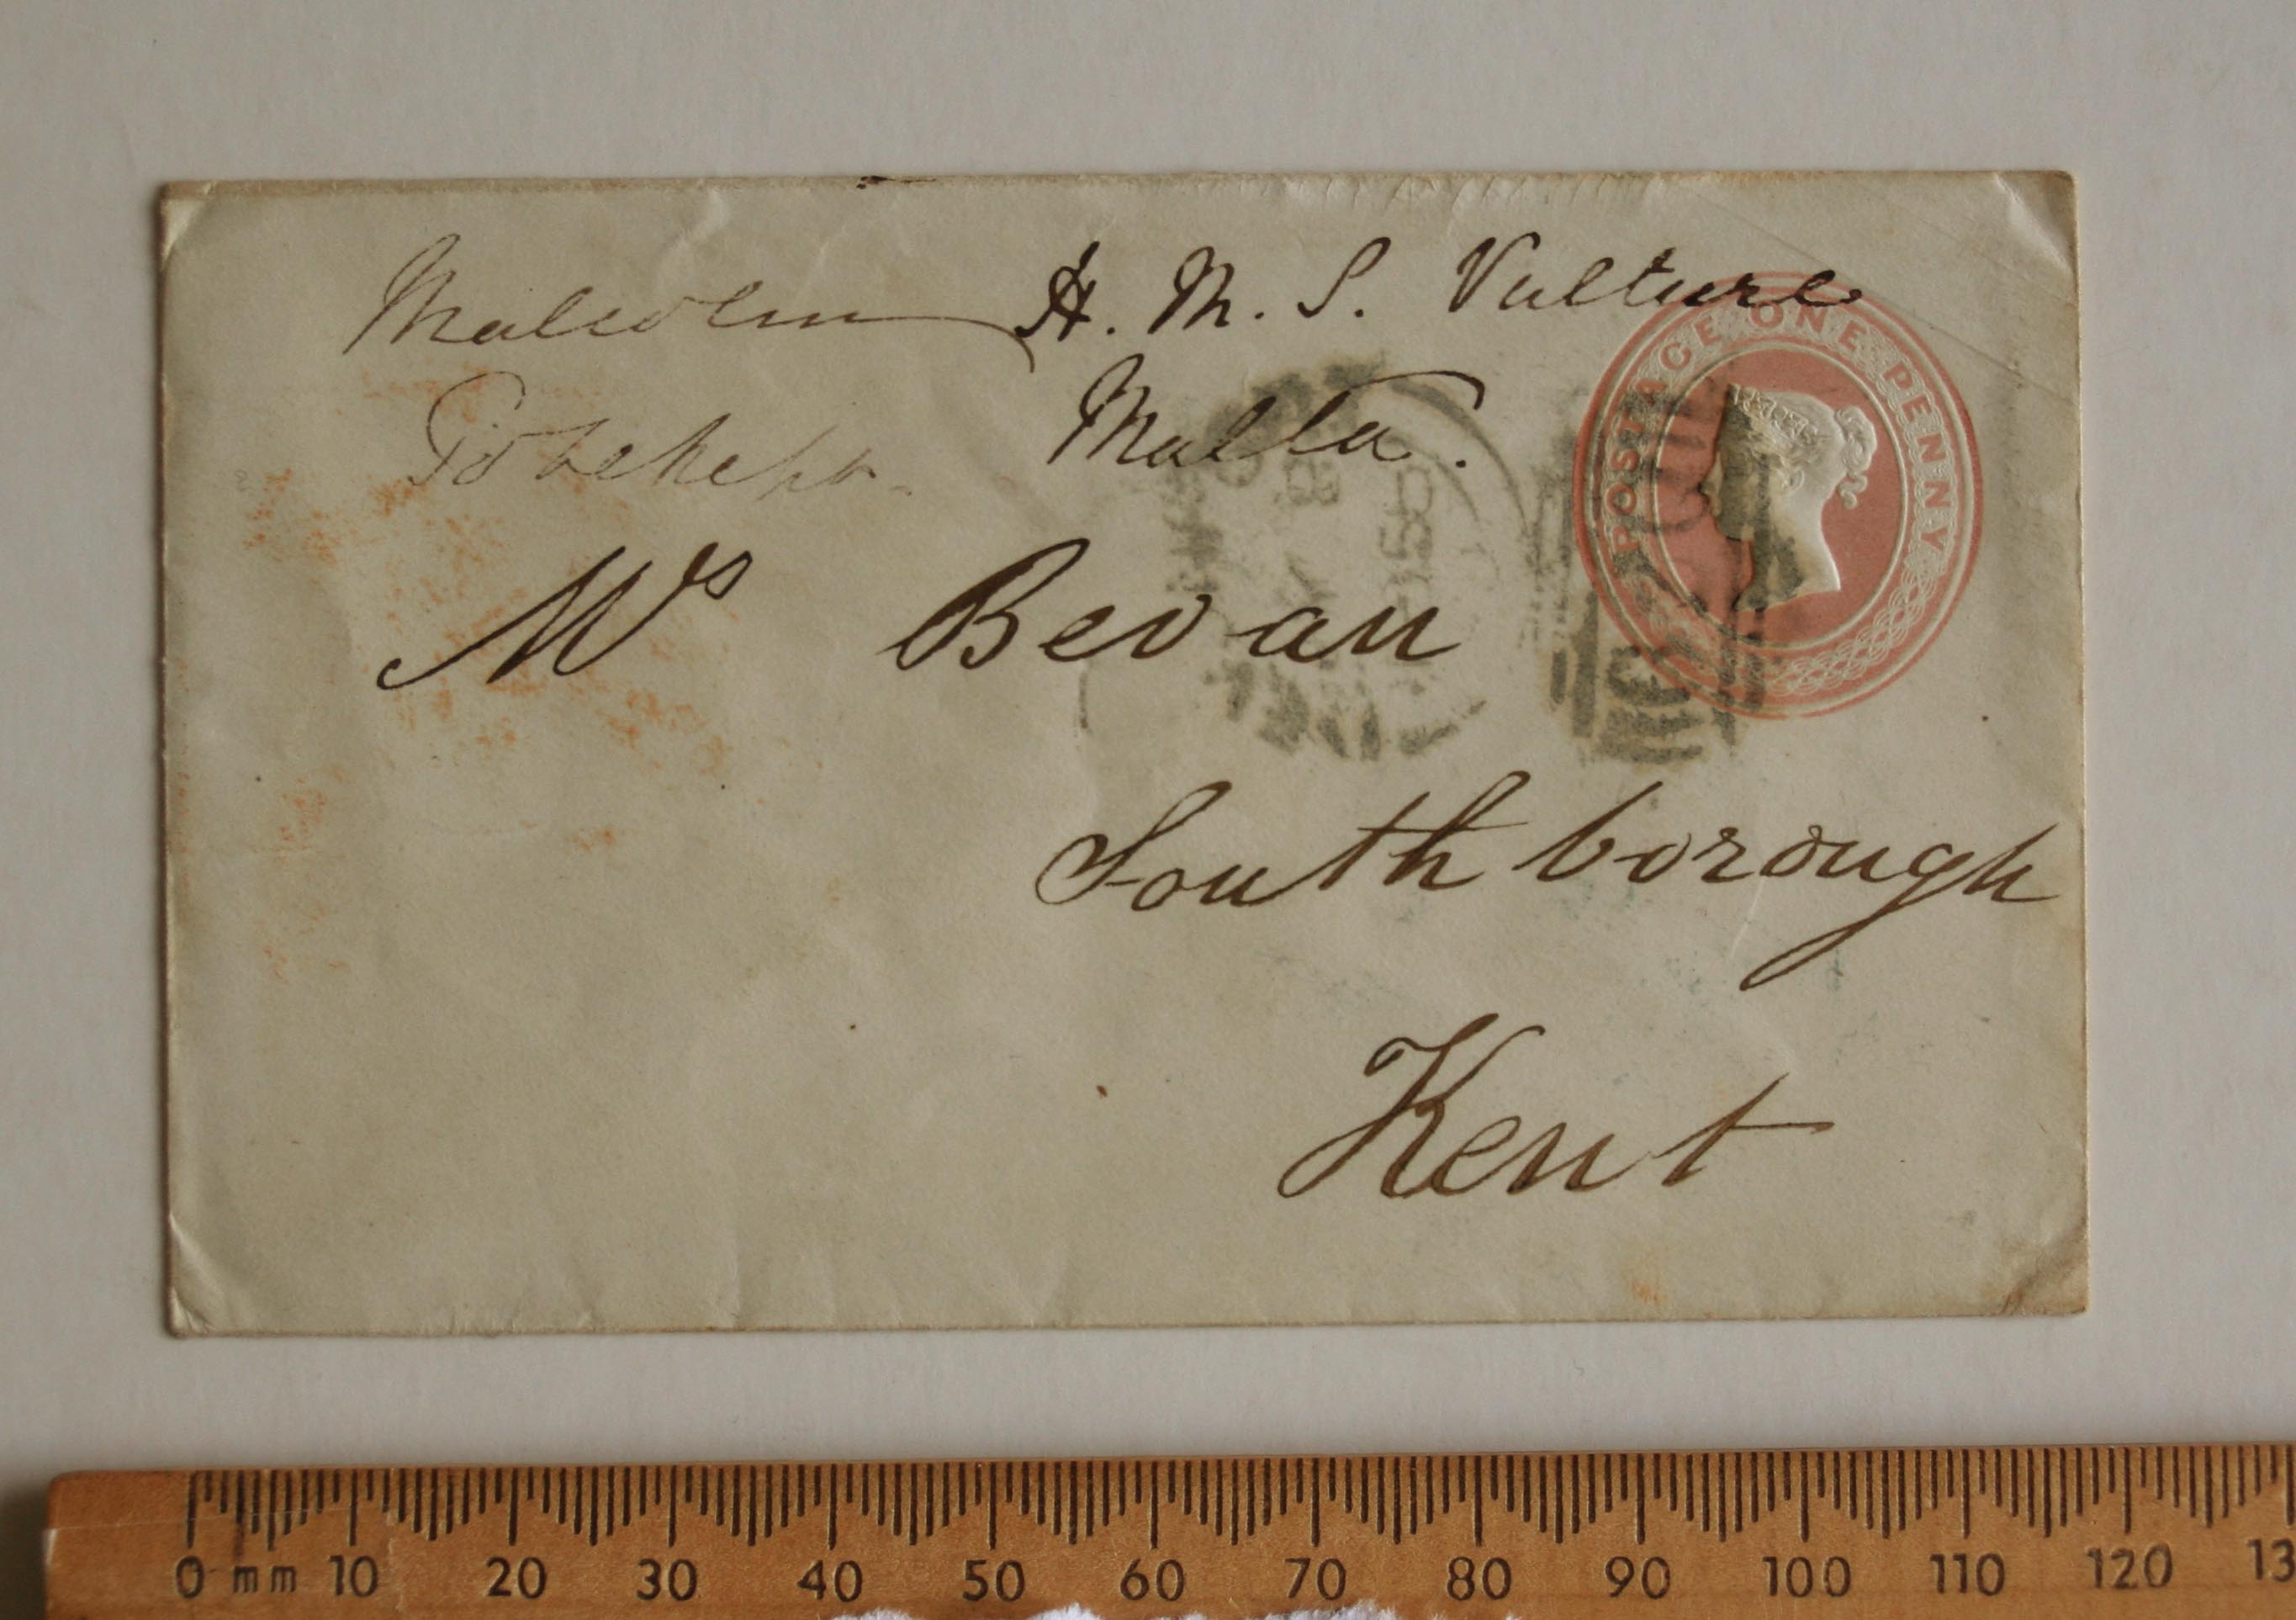 Malcolm H. M. S. Vulture
To be kept. Malta.
POSTAGE ONE PENNY
Mrs Bevan
Southborough
Kent
0 mm 10 20 30 40 50 60 70 80 90 100 110 120 13